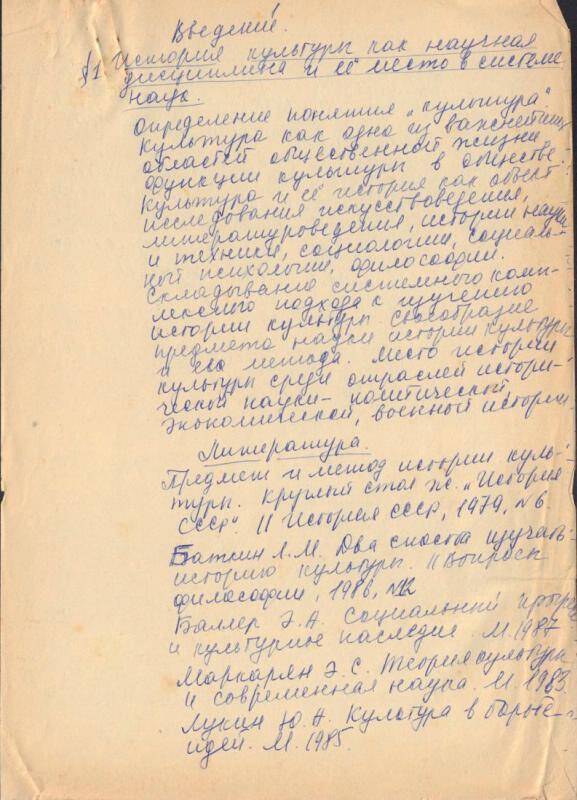 Введений.
§1 История культуры как научная
дисциплина и её место в системе
наук.
Определение понятия „культура".
Культура как одна из важнейших
областей общественной жизни
Функции культуры в обществе.
Культура и её история как объект
исследования искусствоведения,
литературоведения, истории науки
и техники, социологии, социаль-
ной психологии, философии.
Складывание системного комп-
лексного подхода к изучению
истории культуры. Своеобразие
предмета науки истории культуры
и его метода. Место истории
культуры среди отраслей истори-
ческой науки – политической,
экономической, военной истории.
Литература.
Предмет и метод истории куль-
туры. Круглый стол ж. „История
СССР". // История СССР, 1979, №6.
Баткин Л.М. Два способа изучать
историю культуры. // Вопросы
философии, 1986, №12
Баллер Э.А. Социальный прогресс
и культурное наследие. М. 1987
Маркарян Э.С. Теория культуры
и современная наука. М. 1983.
Лукин Ю.А. Культура в борьбе
идей. М. 1985.